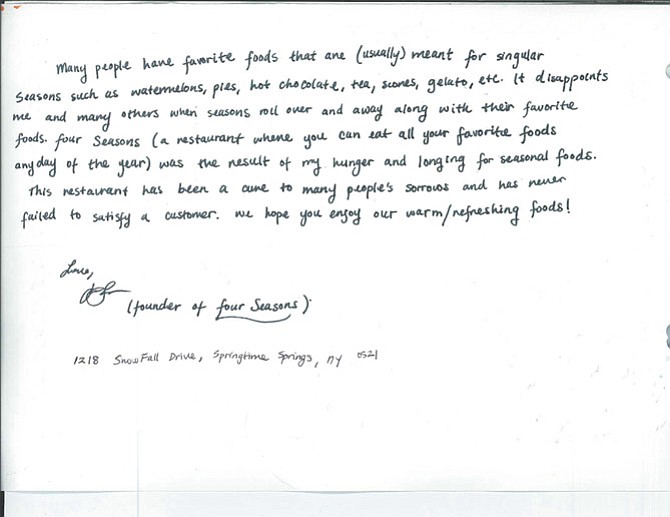 Many people have favorite foods that are (usually) meant for singular
Seasons such as watermelons, pies, hot chocolate, tea, scones, gelato, etc. It disappoints
me and many others when seasons roll over and away along with their favorite
foods. Four Seasons (a restaurant where you can eat all your favorite foods
any day of the year) was the result of my hunger and longing for seasonal foods.
This restaurant has been a cure to many people's sorrows and has never
failed to satisfy a customer. We hope you enjoy our warm/refreshing foods!
Love,
(founder of four Seasons)
1218 SnowFall Drive, Springtime Springs, ny 0521